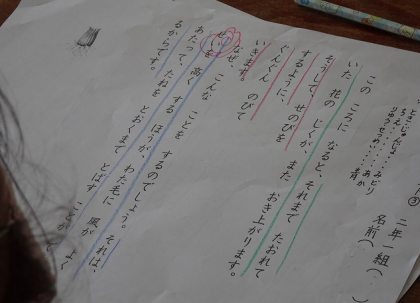 ③ 二年一組(
名前( )
みどり
あか
青
このころになると、それまでたおれて
いた花のじくが、またおき上がります。
そうして、せのびを
するように、
ぐんぐんのびて
いきます。
なぜ、こんなことをするのでしょう。それは、
せいを高くするほうが、わた毛に風がよく
あたって、たねをとおくまでとばすことが
るからです。